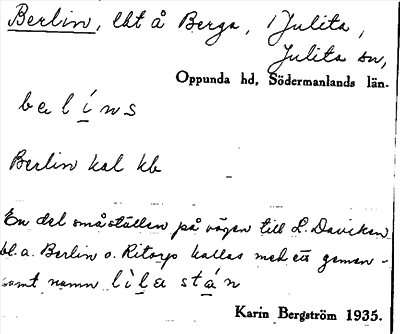 Berlin, lht å Berga, 1 Julita,
Julita sn,
Oppunda hd, Södermanlands län.
bælíns
Berlin kal kb
En del småställen på vägen till L. Daviken
bl. a. Berlin o. Ritorp kallas med ett gemen-
samt namn lìlɐ stán
Karin Bergström 1935.